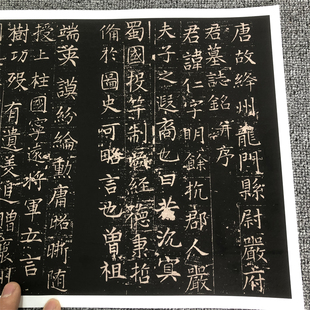 唐故絳州龍門縣尉嚴府
君墓誌銘并序
君諱仁字明餘杭郡人嚴
夫子之遐裔也曰若沉冥
蜀國投竿制經德秉哲
備於圖史可略言也曾祖
端英謨紛綸勳庸昭晰随
授上柱國寧遠將軍立言
樹功歿有遺美追贈襄州